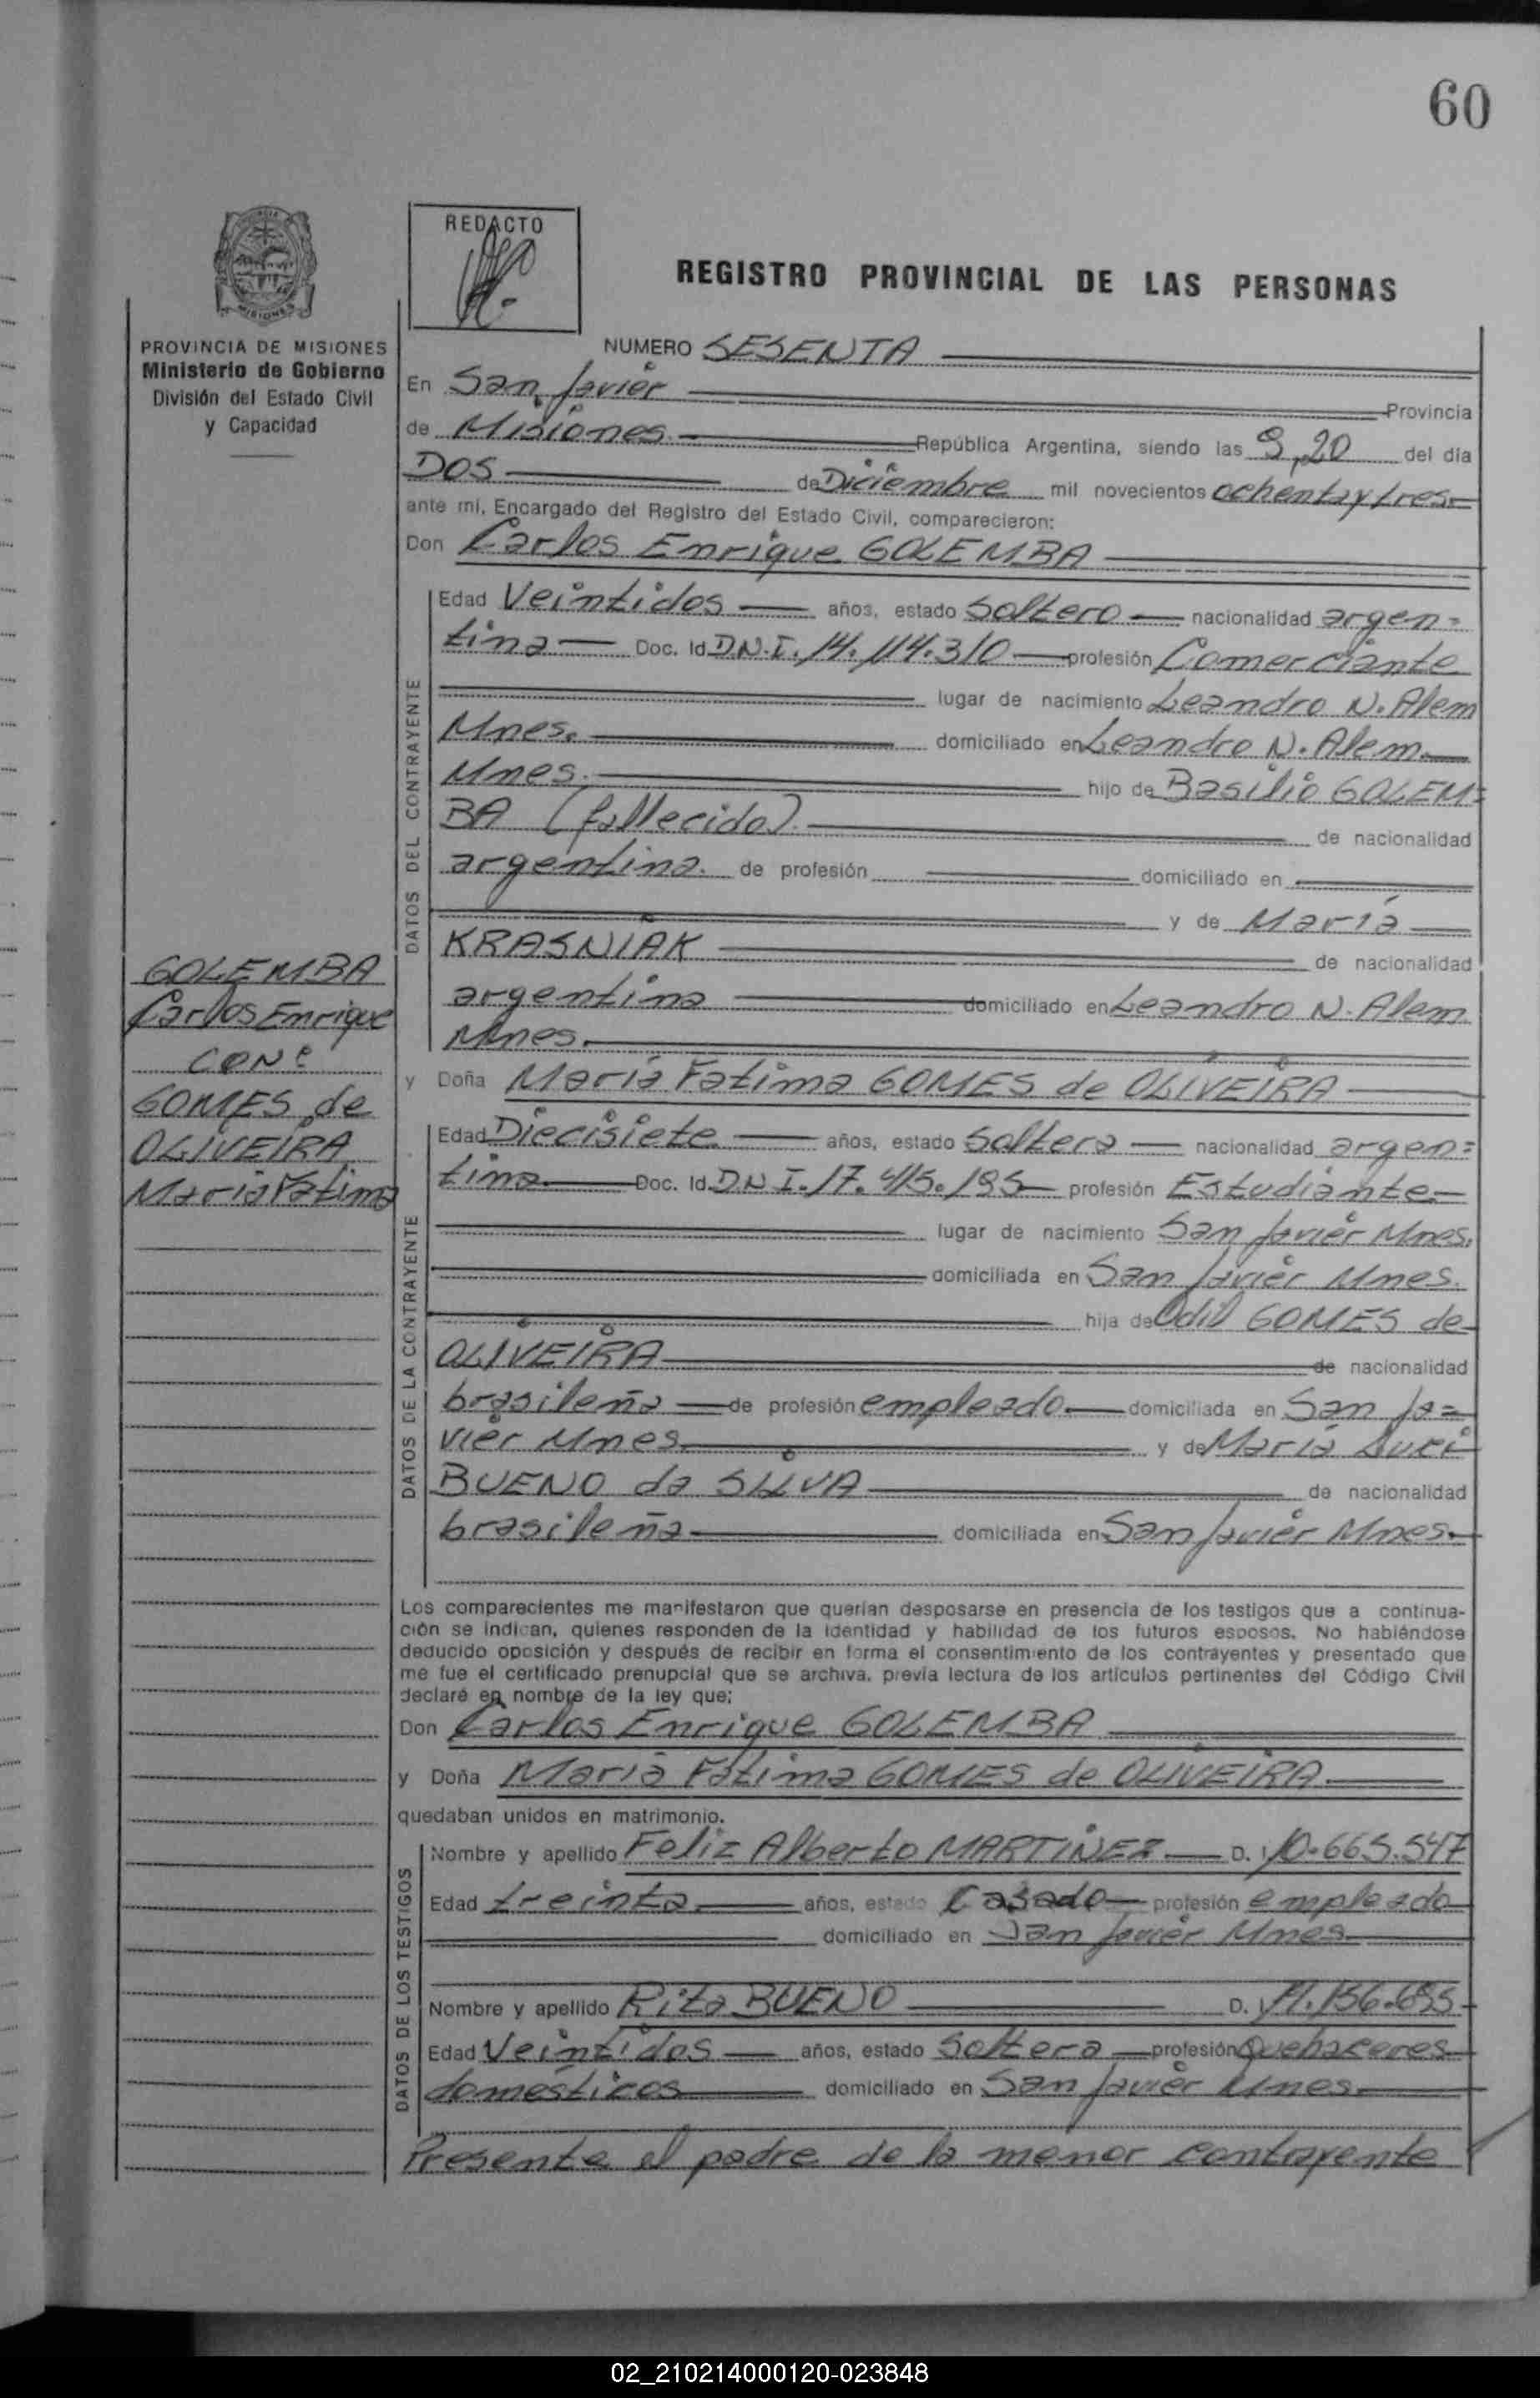 60
REDACTO
REGISTRO PROVINCIAL DE LAS PERSONAS
MISIONES
PROVINCIA DE MISIONES
Ministerio de Gobierno
División del Estado Civil
y Capacidad
NUMERO SESENTA
En San Javier Provincia
de Misiones. República Argentina, siendo las 9,20 del día
DOS de Diciembre mil novecientos ochenta y tres
ante mí, Encargado del Registro del Estado Civil, comparecieron:
Don Carlos Enrique GOLEMBA
DATOS DEL CONTRAYENTE
Edad Veintidos años, estado Soltero nacionalidad argen=
tina Doc. Id D.N.I. 14.114.310 profesión Comerciante
lugar de nacimiento Leandro N. Alem
Mnes. domiciliado en Leandro N. Alem.
Mnes. hijo de Basilio GOLEM=
BA (fallecido). de nacionalidad
argentina. de profesión domiciliado en
y de María
KRASNIAK de nacionalidad
argentina domiciliado en Leandro N. Alem
Mnes.
GOLEMBA
Carlos Enrique
CON:
GOMES de
OLIVEIRA
María Fátima
y Doña María Fatima GOMES de OLIVEIRA
DATOS DE LA CONTRAYENTE
Edad Diecisiete años, estado Soltera nacionalidad argen=
tina Doc. Id. D.N.I. 17.415.195 profesión Estudiante
lugar de nacimiento San Javier Mnes.
domiciliada en San Javier Mnes.
hija de Odil GOMES de
OLIVEIRA de nacionalidad
brasileña de profesión empleado. domiciliada en San Ja=
vier Mnes. y de María
BUENO da SILVA de nacionalidad
brasileña domiciliada en San Javier Mnes.
Los comparecientes me manifestaron que querían desposarse en presencia de los testigos que a continua-
ción se indican, quienes responden de la identidad y habilidad de los futuros esposos. No habiéndose
deducido oposición y después de recibir en forma el consentimiento de los contrayentes y presentado que
me fue el certificado prenupcial que se archiva, previa lectura de los artículos pertinentes del Código Civil
declaré en nombre de la ley que:
Don Carlos Enrique GOLEMBA
y Doña María Fátima GOMES de OLIVEIRA
quedaban unidos en matrimonio.
DATOS DE LOS TESTIGOS
Nombre y apellido Feliz Alberto MARTINEZ D. I 10.665.547
Edad treinta años, estado Casado profesión empleado
domiciliado en San Javier Mnes
Nombre y apellido Rita BUENO D. I
Edad Veintidos años, estado Soltera profesión Quehaceres
domésticos domiciliado en San Javier Mnes
Presente el padre de la menor contrayente
02_210214000120-023848